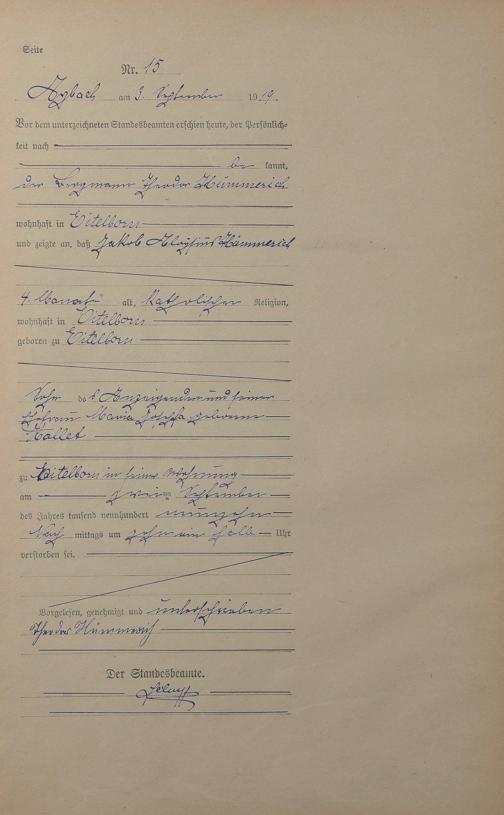 Seite
Nr. 15
Arzbach am 3. September 1919.
Vor dem unterzeichneten Standesbeamten erschien heute, der Persönlich-
keit nach
be kannt,
der Bergmann Theodor Hümmerich
wohnhaft in Eitelborn
und zeigte an, daß Jakob Aloysius Hümmerich
4 Monate alt, katholischer Religion,
wohnhaft in Eitelborn
geboren zu Eitelborn
Sohn des Anzeigenden und seiner
Ehefrau Maria Josepha geborene
zu Eitelborn in seiner Wohnung
am zweiten September
des Jahres tausend neunhundert neunzehn
Nach mittags um zehn ein halb Uhr
verstorben sei.
Vorgelesen, genehmigt und unterschrieben
Theodor Hümmerich
Der Standesbeamte.